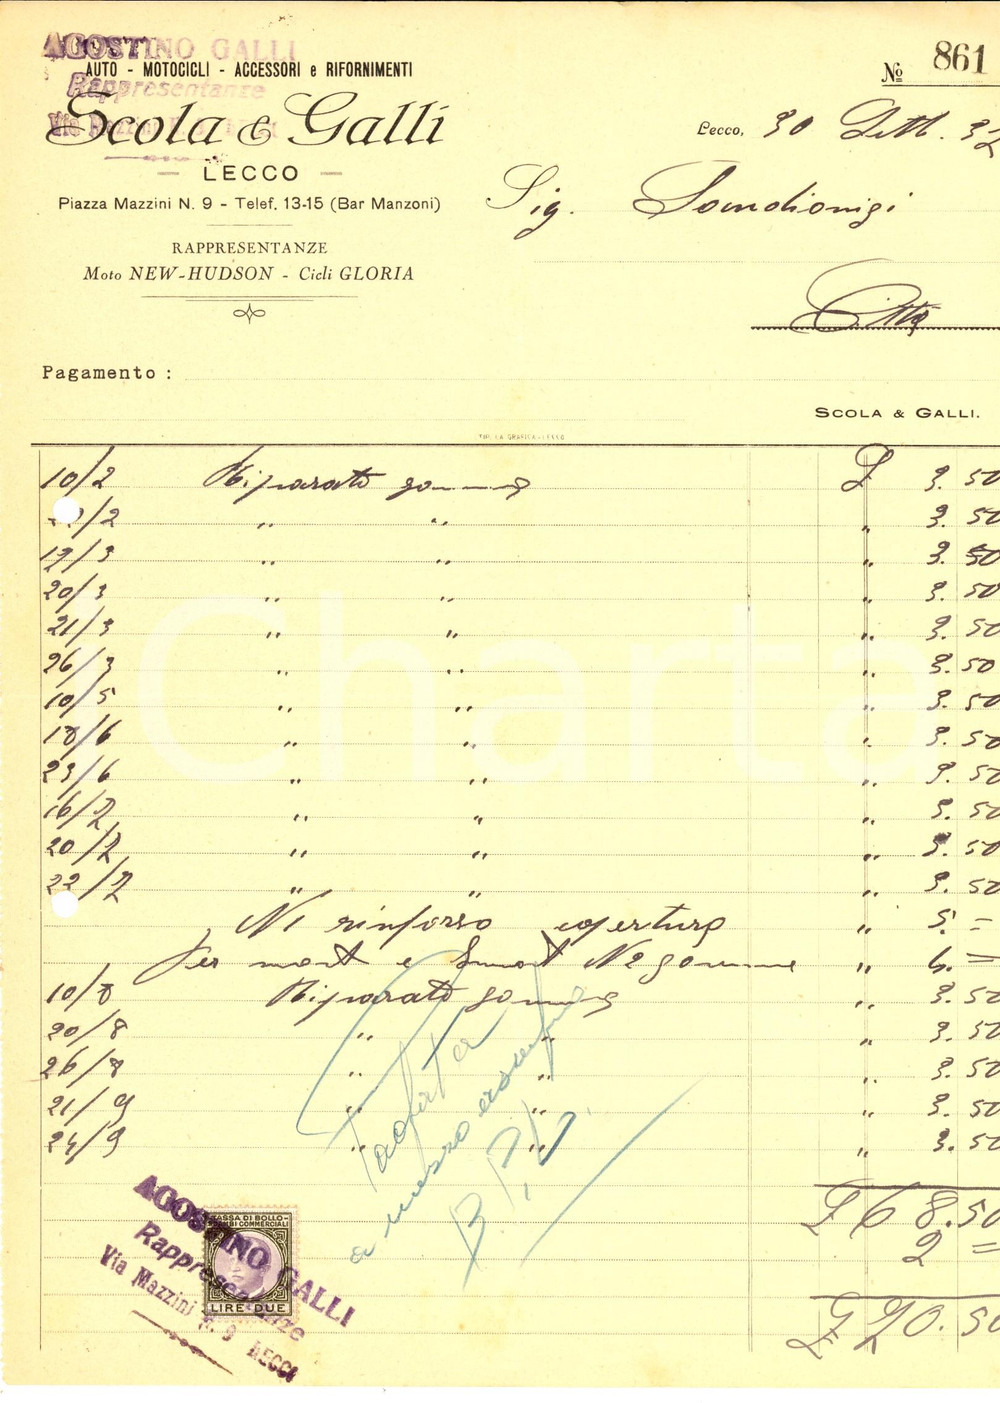 AGOSTINO GALLI
Rappresentanze
AUTO - MOTOCICLI - ACCESSORI e RIFORNIMENTI
Scola & Galli
LECCO
Piazza Mazzini N. 9 - Telef. 13-15 (Bar Manzoni)
RAPPRESENTANZE
Moto NEW-HUDSON - Cicli GLORIA
No 861
Lecco, 30 Sett. 32
Sig. Sandionigi
Città
Pagamento :
SCOLA & GALLI.
TIP. LA GRAFICA - LECCO
10/2 Riparato gomma £ 3.50
/2 " " " 3.50
17/3 " " " 3.50
20/3 " " " 3.50
21/3 " " " 3.50
26/3 " " " 3.50
10/5 " " " 3.50
18/6 " " " 3.50
23/6 " " " 3.50
16/7 " " " 3.50
20/7 " " " 3.50
22/7 " " " 3.50
N1 rinforso copertura " 5. =
Per mont e Smont N2 gomme " 4. =
10/8 Riparato gomma " 3.50
20/8 " " " 3.50
26/8 " " " 3.50
21/9 " " " 3.50
24/9 " " " 3.50
£ 68.50
2 =
£ 70.50
Pagata
a mezzo
B.P.L.
TASSA DI BOLLO
SCAMBI COMMERCIALI
LIRE DUE
AGOSTINO GALLI
Rappresentanze
Via Mazzini N. 9 LECCO
Charta